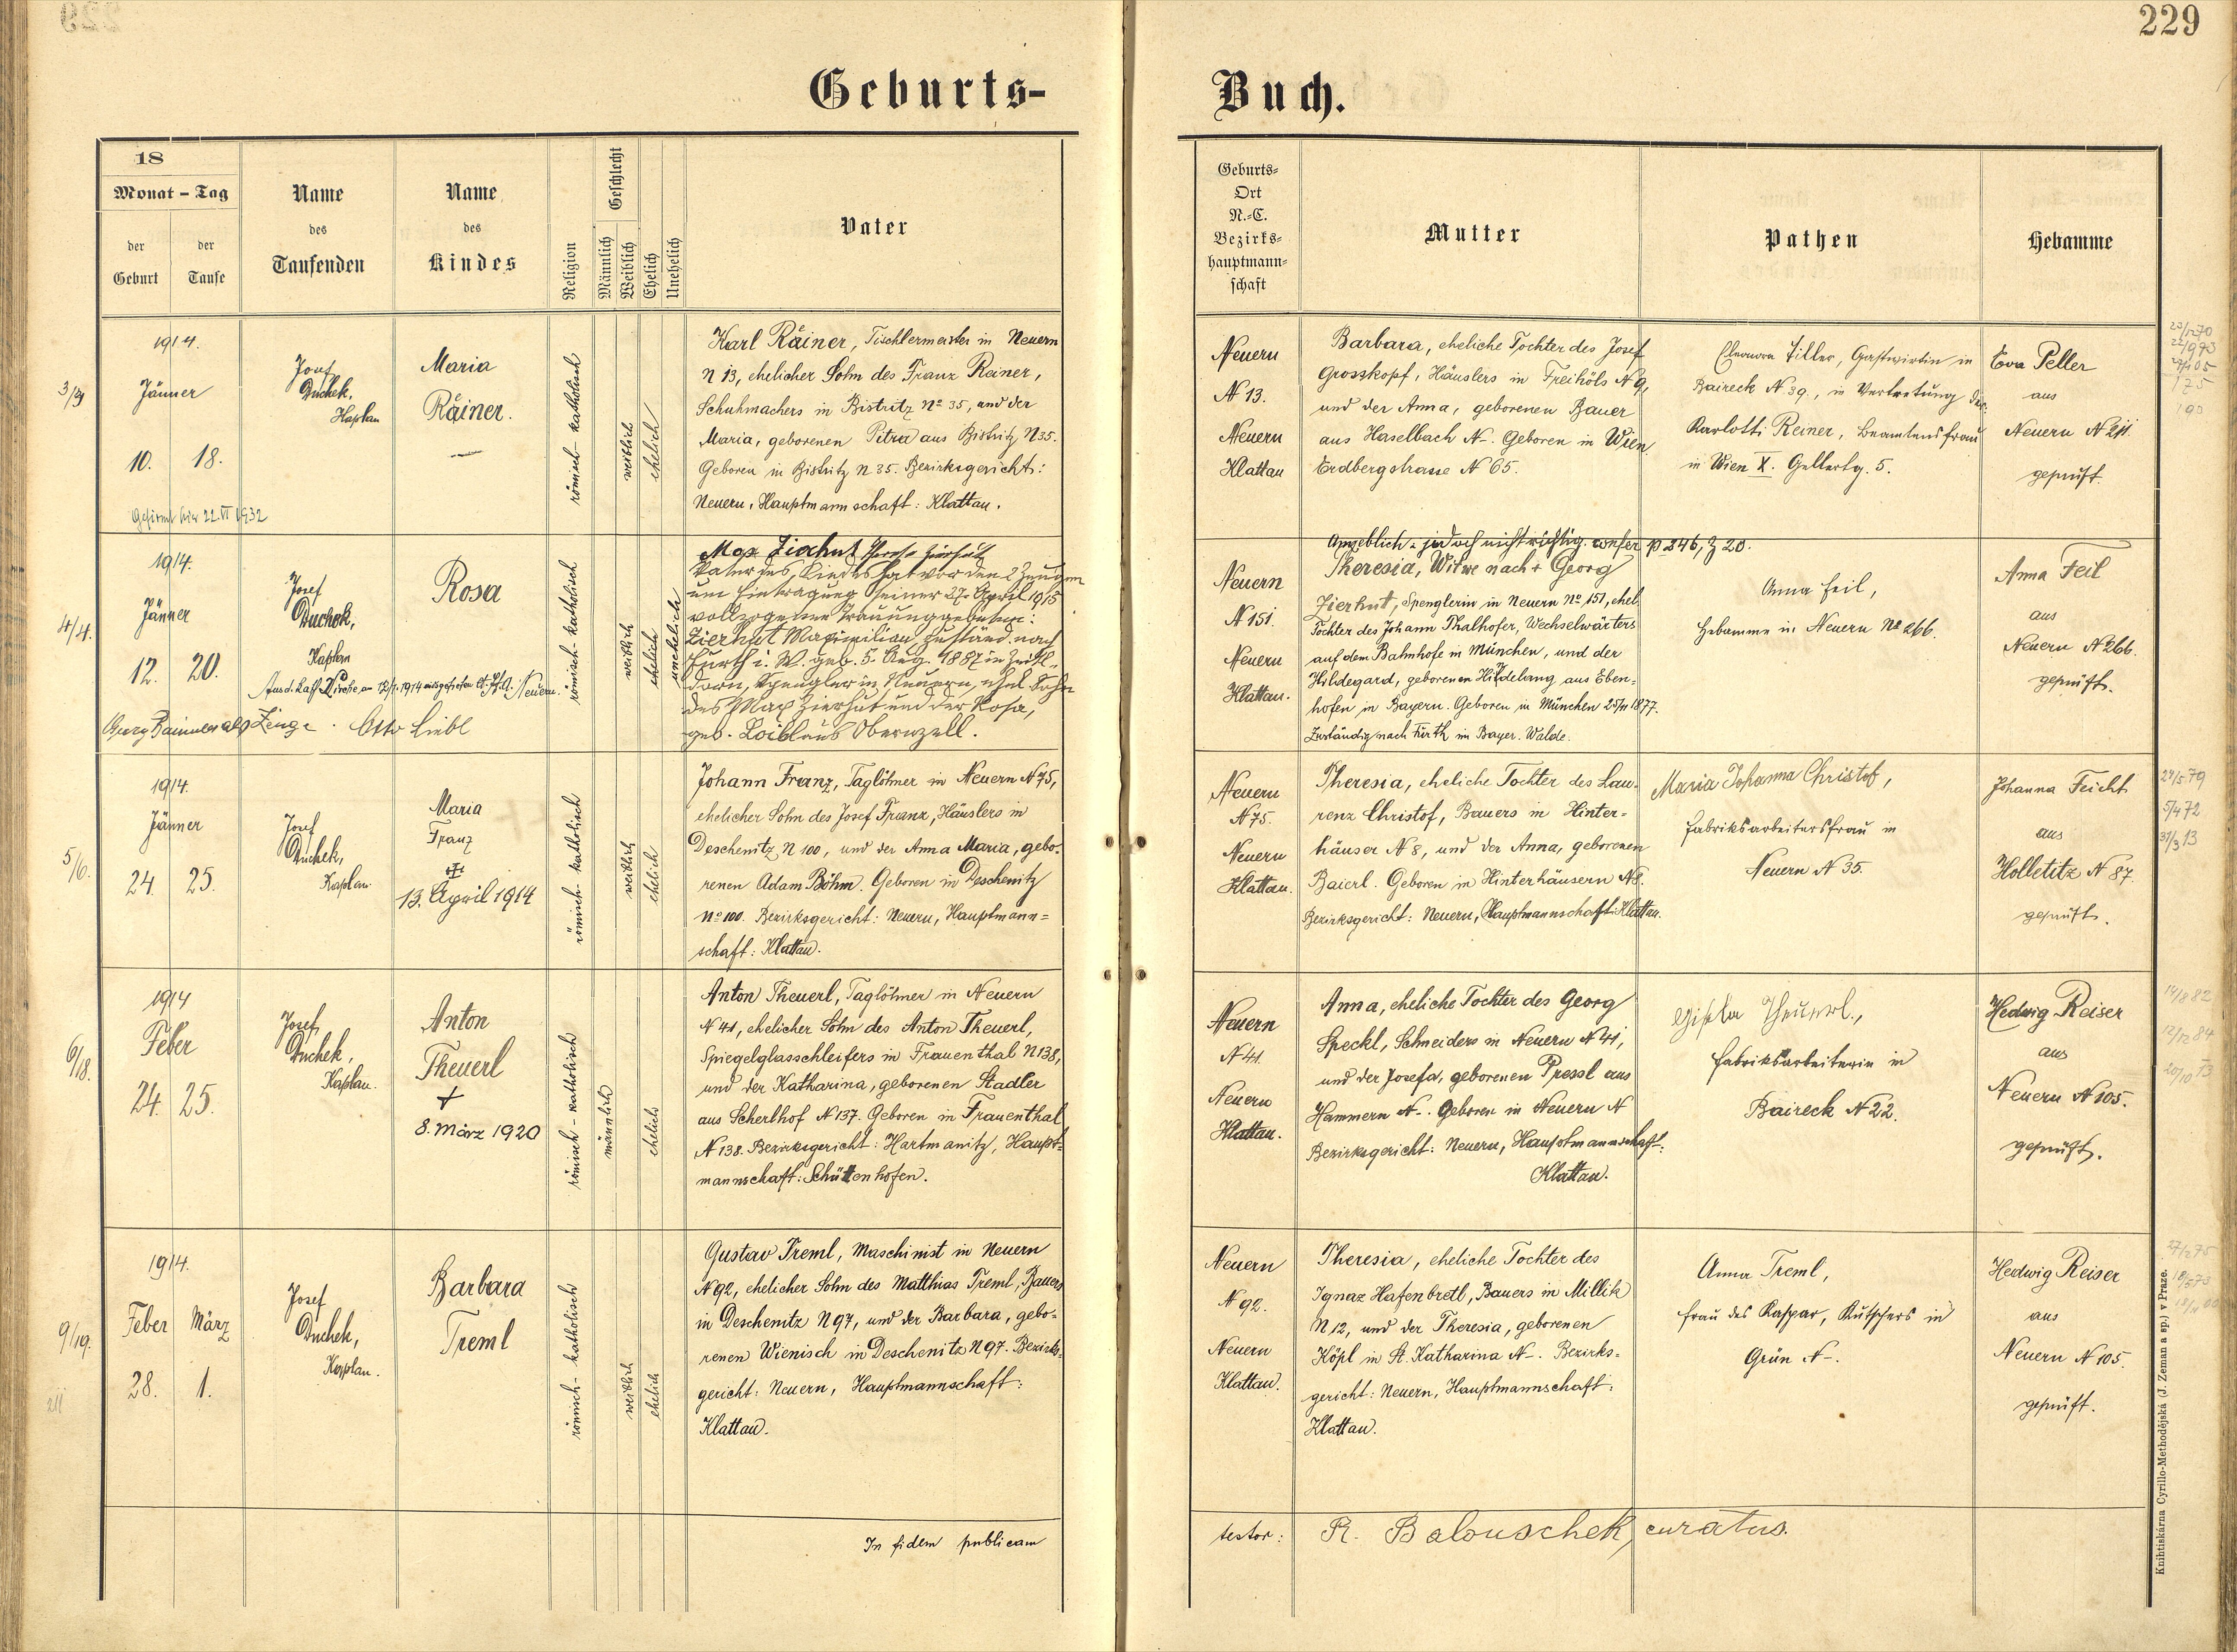 229
Geburts-
Buch.
18
Monat - Tag
der Geburt
der Taufe
Name des Taufenden
Name des Kindes
Religion
Geschlecht
Männlich
Weiblich
Ehelich
Unehelich
Vater
Geburts-
Ort
N.-C.
Bezirks-
hauptmann-
schaft
Mutter
Pathen
Hebamme
1914.
Jänner
10. 18.
Josef
Duchek,
Kaplan
Maria
Räiner.
römisch-katholisch
weiblich
ehelich
Karl Räiner, Tischlermeister in Neuern
N 13, ehelicher Sohn des Franz Reiner,
Schuhmachers in Bistritz No 35, und der
Maria, geborenen Petra aus Bistritz N 35.
Geboren in Bistritz N 35. Bezirksgericht:
Neuern, Hauptmannschaft: Klattau.
Neuern
N 13.
Neuern
Klattau
Barbara, eheliche Tochter des Josef
Grosskopf, Häuslers in Freihöls N 9,
und der Anna, geborenen Bauer
aus Haselbach N-. Geboren in Wien
Erdbergstrasse N 65.
Eleonora Tiller, Gastwirtin in
Baireck N 39., in Vertretung der
Karlotti Reiner, Beamtensfrau
in Wien X. Gellertg. 5.
Eva Peller
aus
Neuern N 211.
geprüft.
Gefirmt hier 22. VI 1932
4/4.
1914.
Jänner
12. 20.
Josef
Duchek,
Kaplan
Rosa
römisch-katholisch
weiblich
ehelich
unehelich
Georg Baimler als Zeuge. Otto Liebl
Vater des Kindes hat vor den 2 Zeugen
um Eintragung seiner 27. April 1915
vollzogener Trauung gebeten:
Zierhut Maximilian, zuständ. nach
Furth i. W. geb. 5. Aug. 1887 in
dorn, Spengler in Neuern, ehel. Sohn
des Max Zierhut und der Rosa,
geb. Loibl aus Obernzell.
Neuern
N 151.
Neuern
Klattau.
Angeblich - jedoch nicht richtig. confer p 246, Z 20.
Theresia, Witwe nach + Georg
Zierhut, Spenglerin in Neuern No 151, ehel.
Tochter des Johann Thalhofer, Wechselwärters
auf dem Bahnhofe in München, und der
Hildegard, geborenen Hildebrang aus Eben-
hofen in Bayern. Geboren in München 25/11 1877.
Zuständig nach Fürth im Bayer. Walde.
Anna Feil,
Hebamme in Neuern No 266.
Anna Feil
aus
Neuern N 266.
geprüft.
5/6.
1914.
Jänner
24. 25.
Josef
Duchek,
Kaplan.
Maria
Franz
13. April 1914
römisch-katholisch
weiblich
ehelich
Johann Franz, Taglöhner in Neuern N 75,
ehelicher Sohn des Josef Franz, Häuslers in
Deschenitz N 100, und der Anna Maria, gebo-
renen Adam Böhm. Geboren in Deschenitz
No 100. Bezirksgericht: Neuern, Hauptmann=
schaft: Klattau.
Neuern
N 75.
Neuern
Klattau.
Theresia, eheliche Tochter des Lau-
renz Christof, Bauers in Hinter-
häuser N 8, und der Anna, geborenen
Baierl. Geboren in Hinterhäusern N 8.
Bezirksgericht: Neuern, Hauptmannschaft: Klattau.
Maria Johanna Christof,
Fabriksarbeitersfrau in
Neuern N 35.
Johanna Feicht
aus
Holletitz N 87.
geprüft.
29/5 79
5/4 72
31/3 13
6/18.
1914
Feber
24. 25.
Josef
Duchek,
Kaplan.
Anton
Theuerl
+
8. März 1920
römisch-katholisch
männlich
ehelich
Anton Theuerl, Taglöhner in Neuern
N 41, ehelicher Sohn des Anton Theuerl,
Spiegelglasschleifers in Frauenthal N 138,
und der Katharina, geborenen Stadler
aus Scherlhof N 137. Geboren in Frauenthal
N 138. Bezirksgericht: Hartmanitz, Haupt-
mannschaft: Schüttenhofen.
Neuern
N 41
Neuern
Klattau.
Anna, eheliche Tochter des Georg
Speckl, Schneiders in Neuern N 41,
und der Josefa, geborenen Pressl aus
Hammern N-. Geboren in Neuern N
Bezirksgericht: Neuern, Hauptmannschaft:
Klattau.
Gisela Theuerl.,
Fabriksarbeiterin in
Baireck N 22.
Hedwig Reiser
aus
Neuern N 105.
geprüft.
9/19.
1914.
Feber März
28. 1.
Josef
Duchek,
Kaplan.
Barbara
Treml
römisch-katholisch
weiblich
ehelich
Gustav Treml, Maschinist in Neuern
N 92, ehelicher Sohn des Matthias Treml, Bauers
in Deschenitz N 97, und der Barbara, gebo-
renen Wienisch in Deschenitz N 97. Bezirks-
gericht: Neuern, Hauptmannschaft:
Klattau.
Neuern
N 92.
Neuern
Klattau.
Theresia, eheliche Tochter des
Ignaz Hafenbretl, Bauers in Millik
N 12, und der Theresia, geborenen
Köpl in St. Katharina N-. Bezirks-
gericht: Neuern, Hauptmannschaft:
Klattau.
Anna Treml,
Frau des Kaspar, Kutschers in
Grün N-.
Hedwig Reiser
aus
Neuern N 105.
geprüft.
In fidem publicam
testor: R. Balouschek, curatus.
Knihtiskárna Cyrillo-Methodějská (J. Zeman a sp.) v Praze.